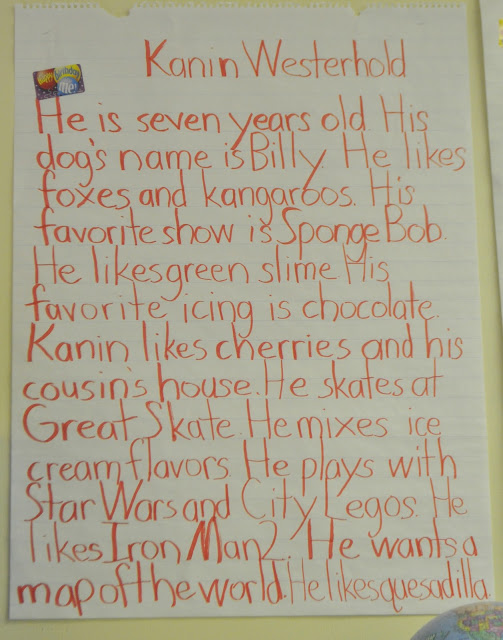 Kanin Westerhold
He is seven years old. His
dog's name is Billy. He likes
foxes and kangaroos. His
favorite show is SpongeBob.
He likes green slime. His
favorite icing is chocolate.
Kanin likes cherries and his
cousin's house. He skates at
Great Skate. He mixes ice
cream flavors. He plays with
Star Wars and City Legos. He
likes Iron Man 2. He wants a
map of the world. He likes quesadilla.